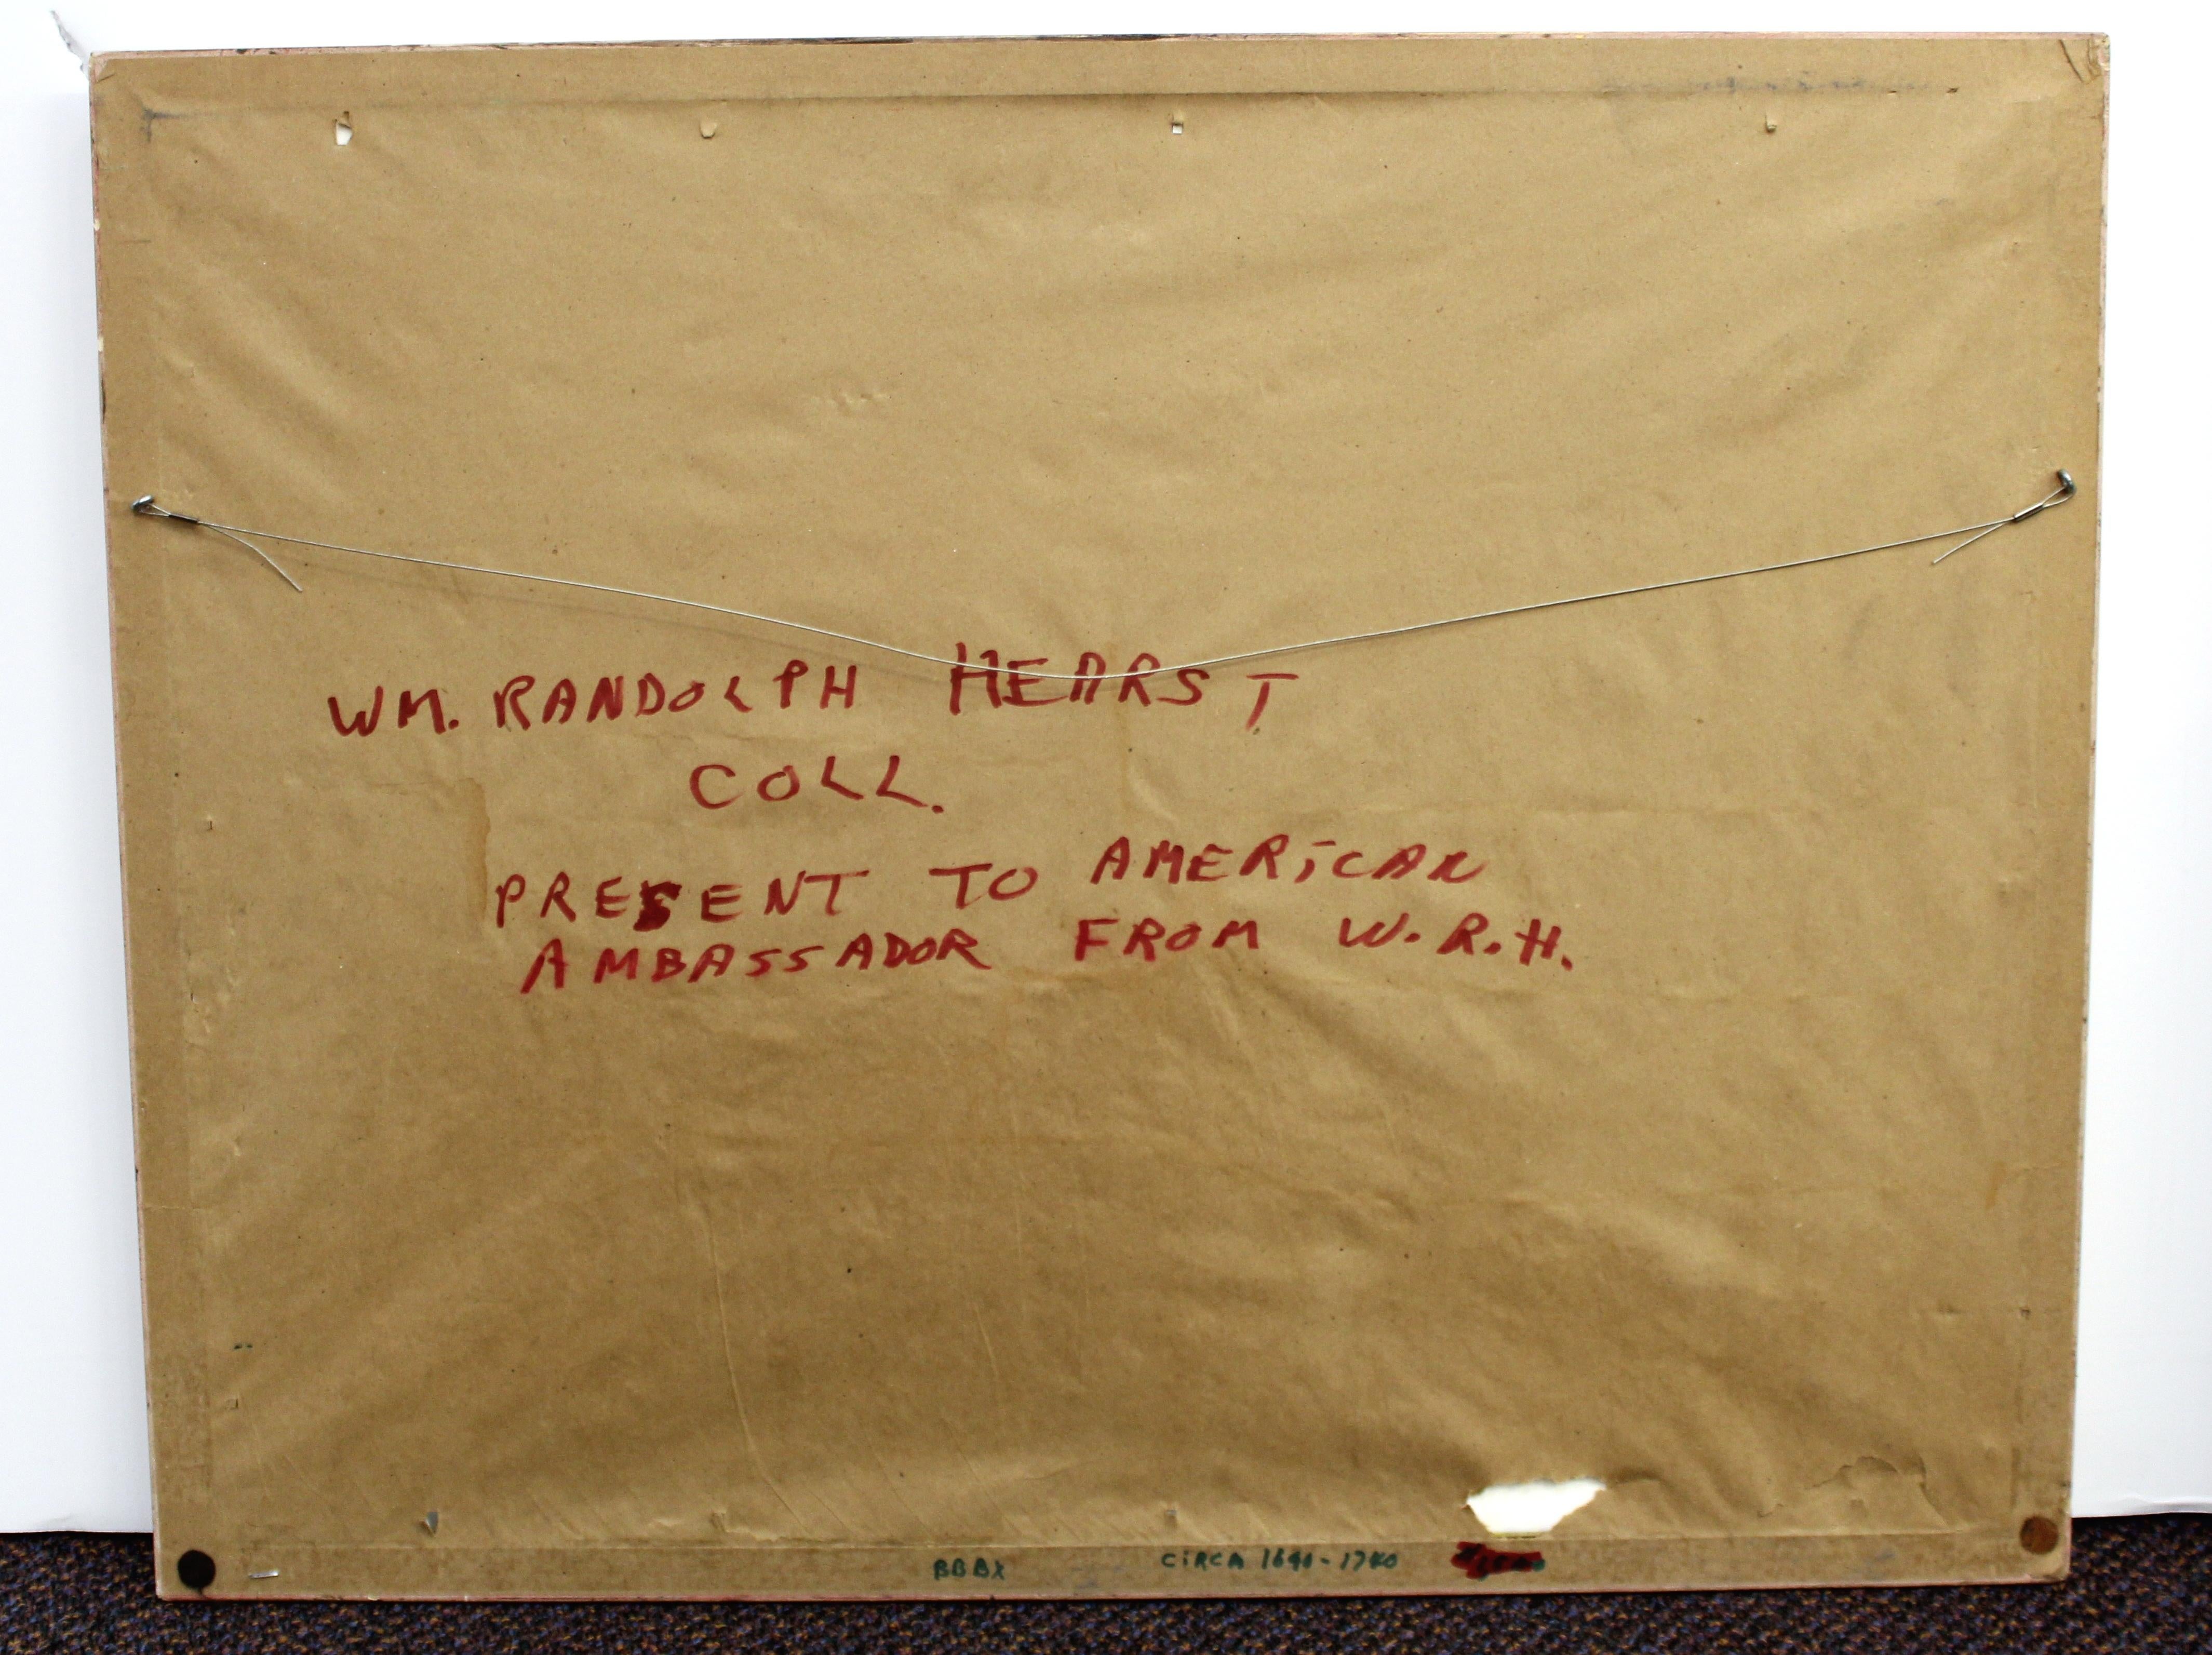 WM. RANDOLPH HEARST
COLL.
PRESENT TO AMERiCAN
AMBASSADOR FROM W.R.H.
BBBX CiRCA 1640-1740